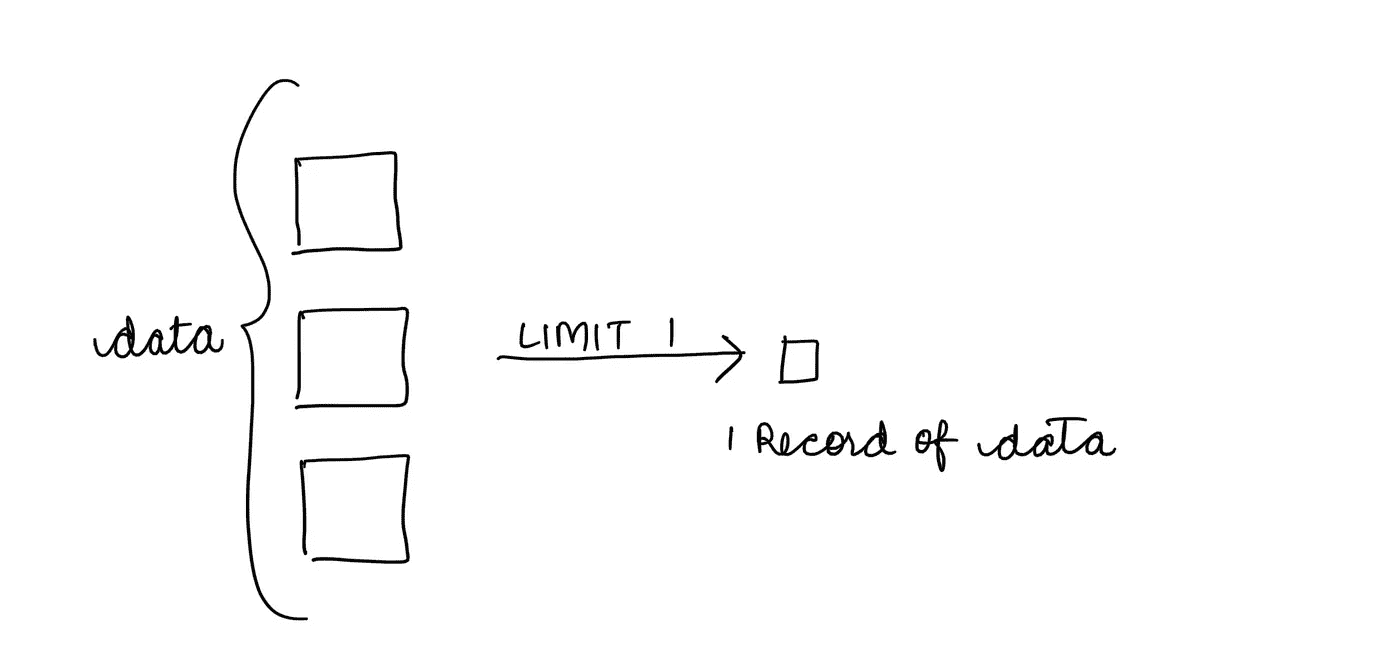 data
LIMIT 1
1 Record of data